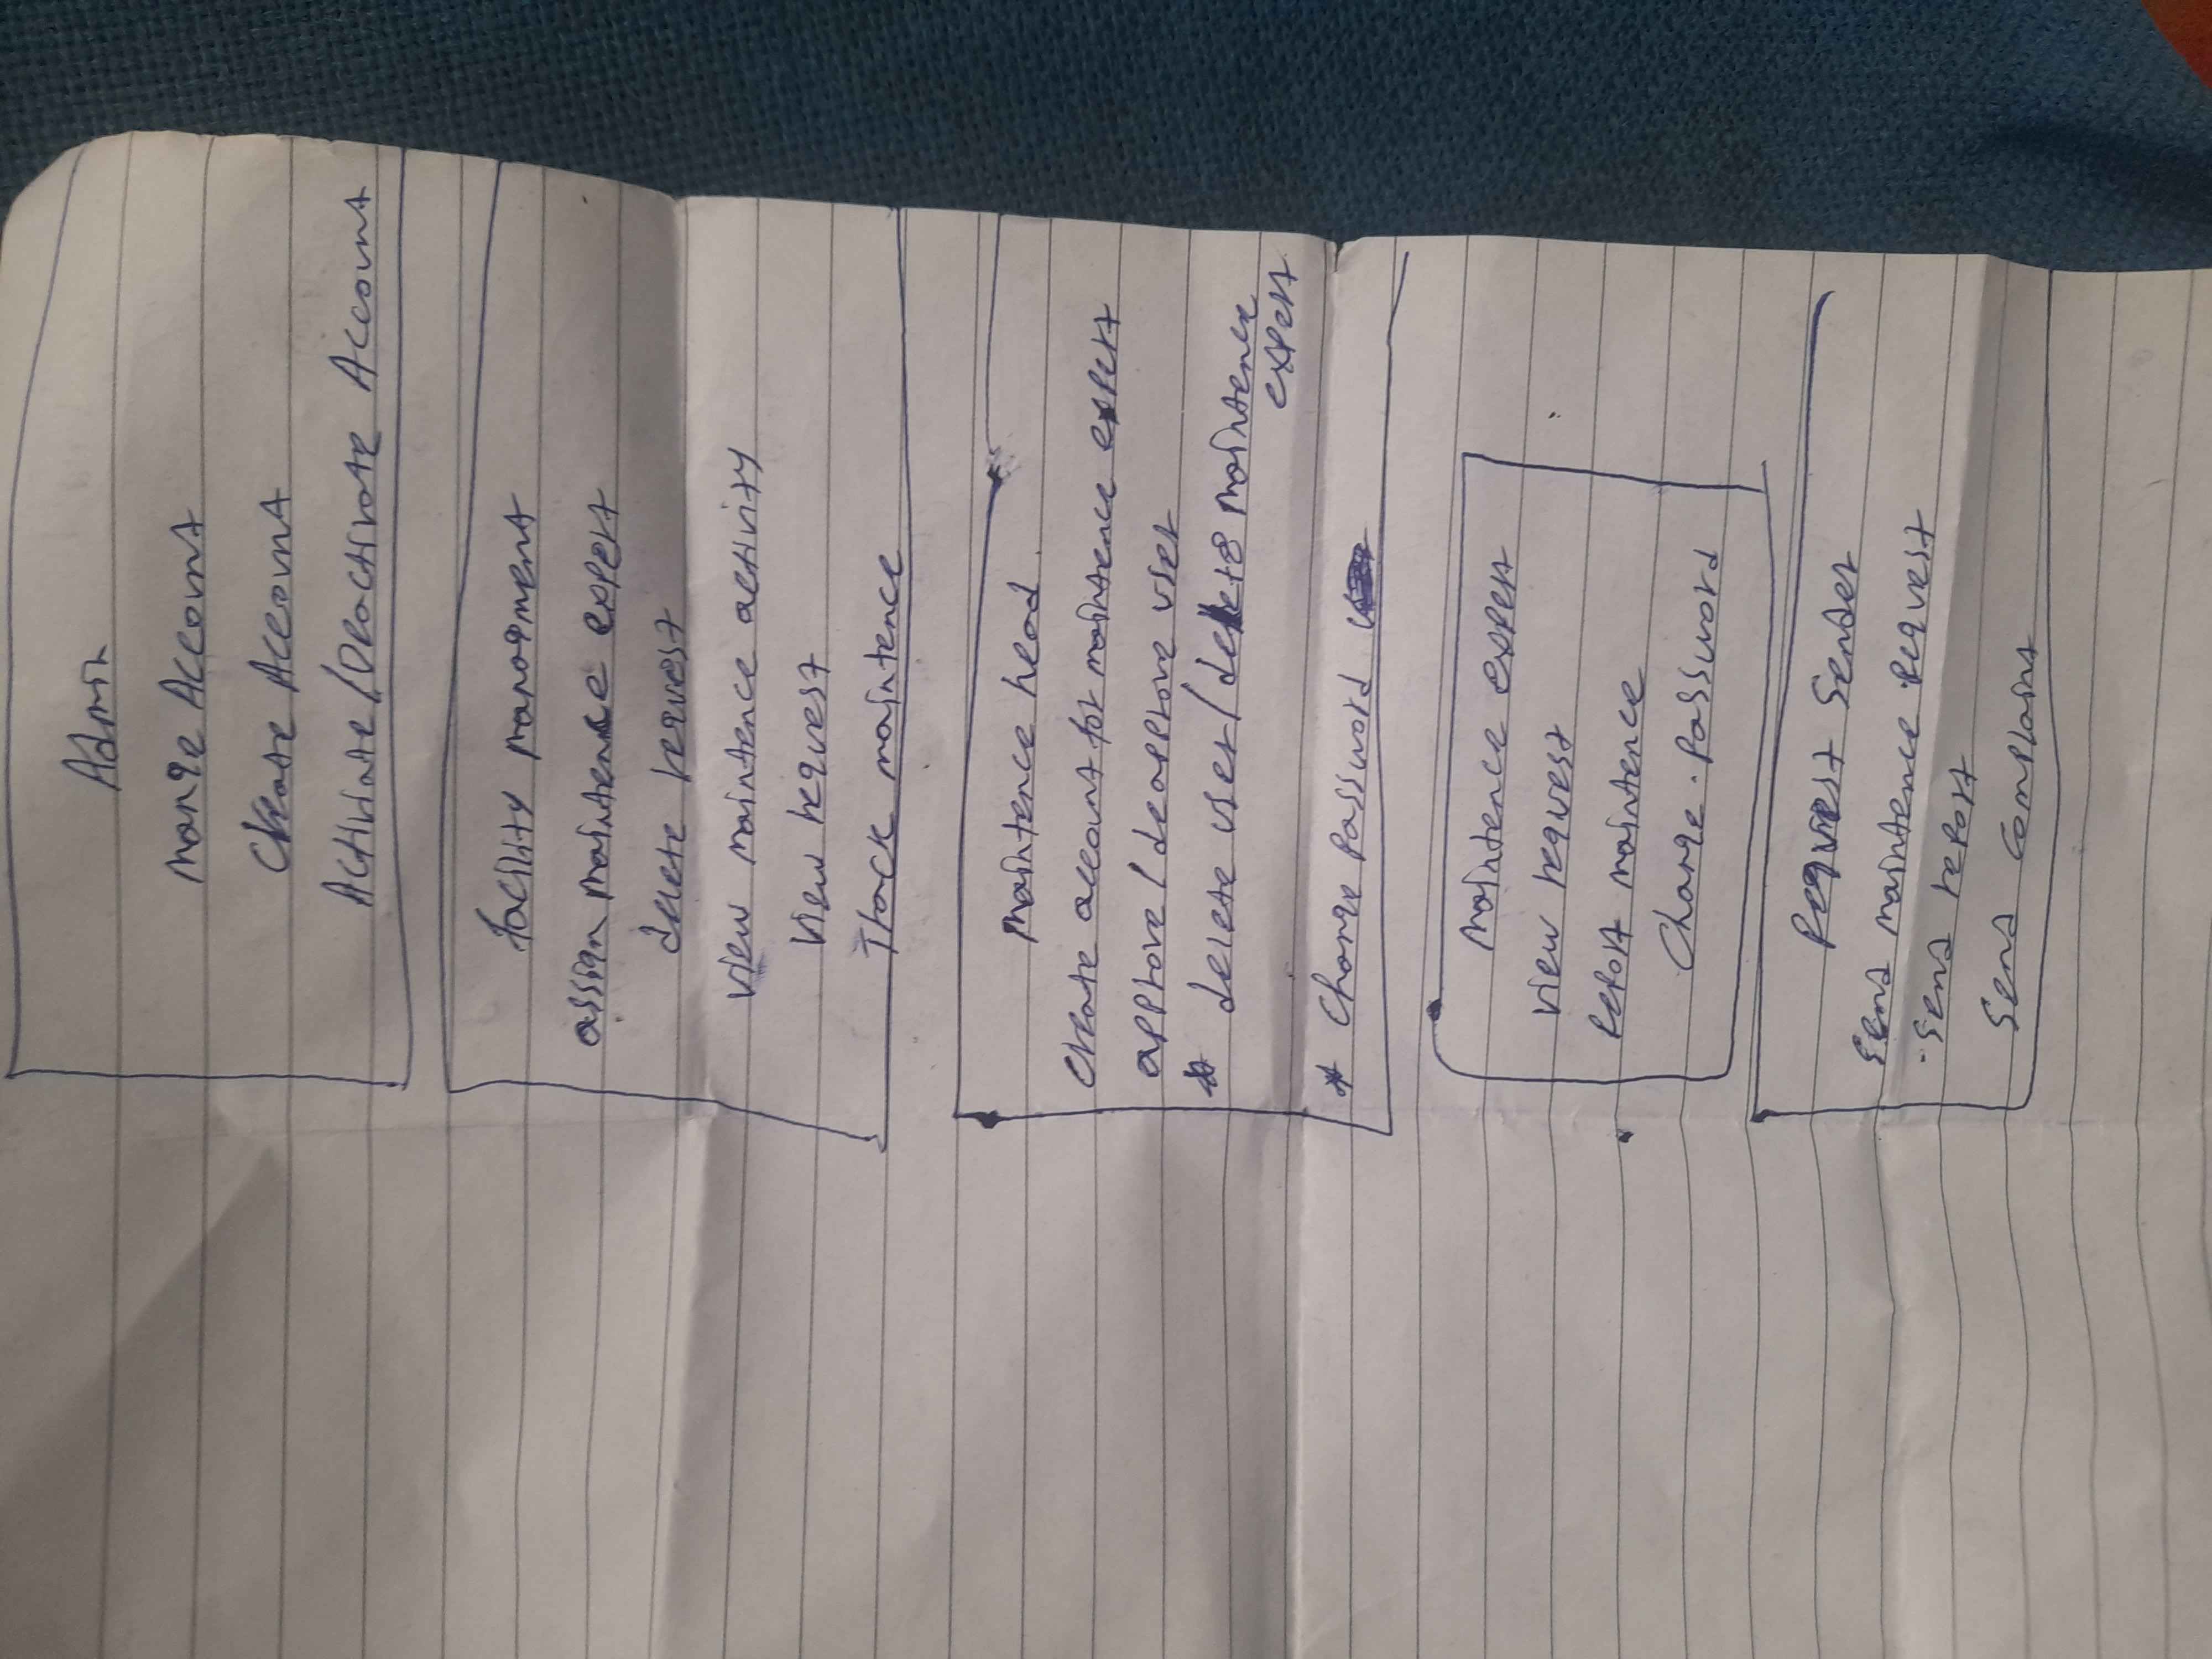 Admin
Mange Account
Create Account
Activate/Deactivate Account
facility management
assign maintence expert
delete request
view maintence activity
View request
Track maintence
Maintence head
Create account for maintence expert
approve/deapprove user
* delete user/delete maintence
expert
* Change Password
Maintence expert
View request
Report maintence
Change Password
Request Sender
Send maintence request
Send report
Send complaint